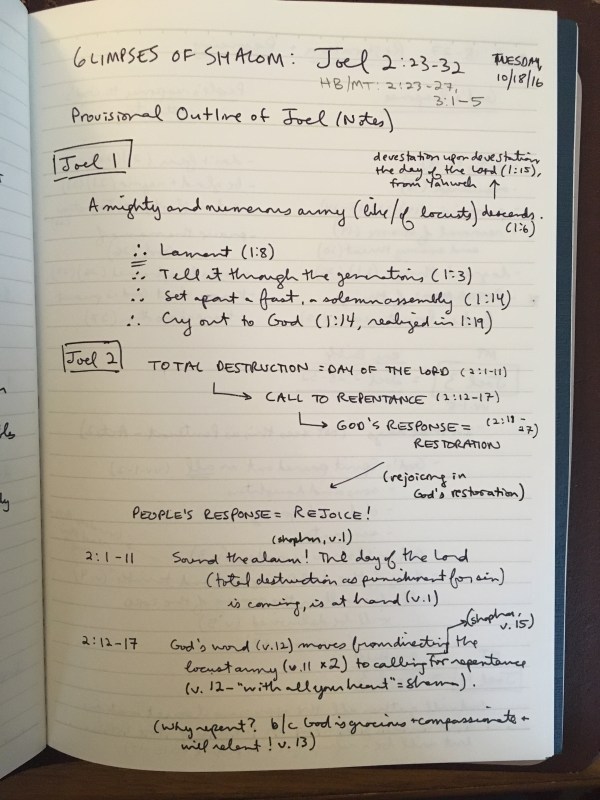 GLIMPSES OF SHALOM: Joel 2:23-32
TUESDAY,
10/18/16
HB/MT: 2:23-27,
3:1-5
Provisional Outline of Joel (Notes)
Joel 1
devestation upon devestation
the day of the Lord (1:15),
from Yahweh ↑
A mighty and numerous army (like/of locusts) descends.
(1:6)
∴ Lament (1:8)
∴ Tell it through the generations (1:3)
∴ Set apart a fast, a solemn assembly (1:14)
∴ Cry out to God (1:14, realized in 1:19)
Joel 2
TOTAL DESTRUCTION = DAY OF THE LORD (2:1-11)
→ CALL TO REPENTANCE (2:12-17)
→ GOD'S RESPONSE = (2:18-27)
RESTORATION
(rejoicing in
God's restoration)
PEOPLE'S RESPONSE = REJOICE!
(shophar, v.1)
2:1-11 Sound the alarm! The day of the Lord
(total destruction as punishment for sin)
is coming, is at hand (v.1)
(shophar, v.15)
2:12-17 God's word (v.12) moves from directing the
locust army (v.11 x2) to calling for repentence
(v. 12 - "with all your heart" = Shema).
(Why repent? b/c God is gracious + compassionate +
will relent! v. 13)